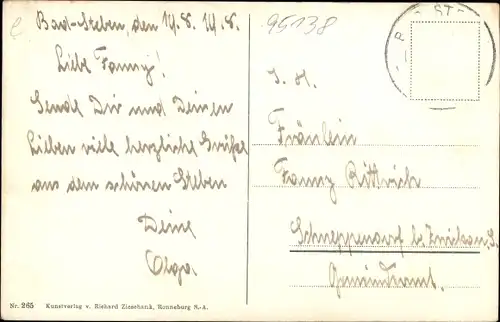 Bad-Steben, den 14.8.19.8.
Liebe Fanny!
Sende Dir und Deinen
Lieben viele herzliche Grüße
aus dem schönen Steben
Deine
Olga
Nr. 265 Kunstverlag v. Richard Zieschank, Ronneburg S.-A.
95138
P ST
S. H.
Fräulein
Fanny Rittrich
Schneppendorf bei Zwickau i. S.
Gemeindeamt.